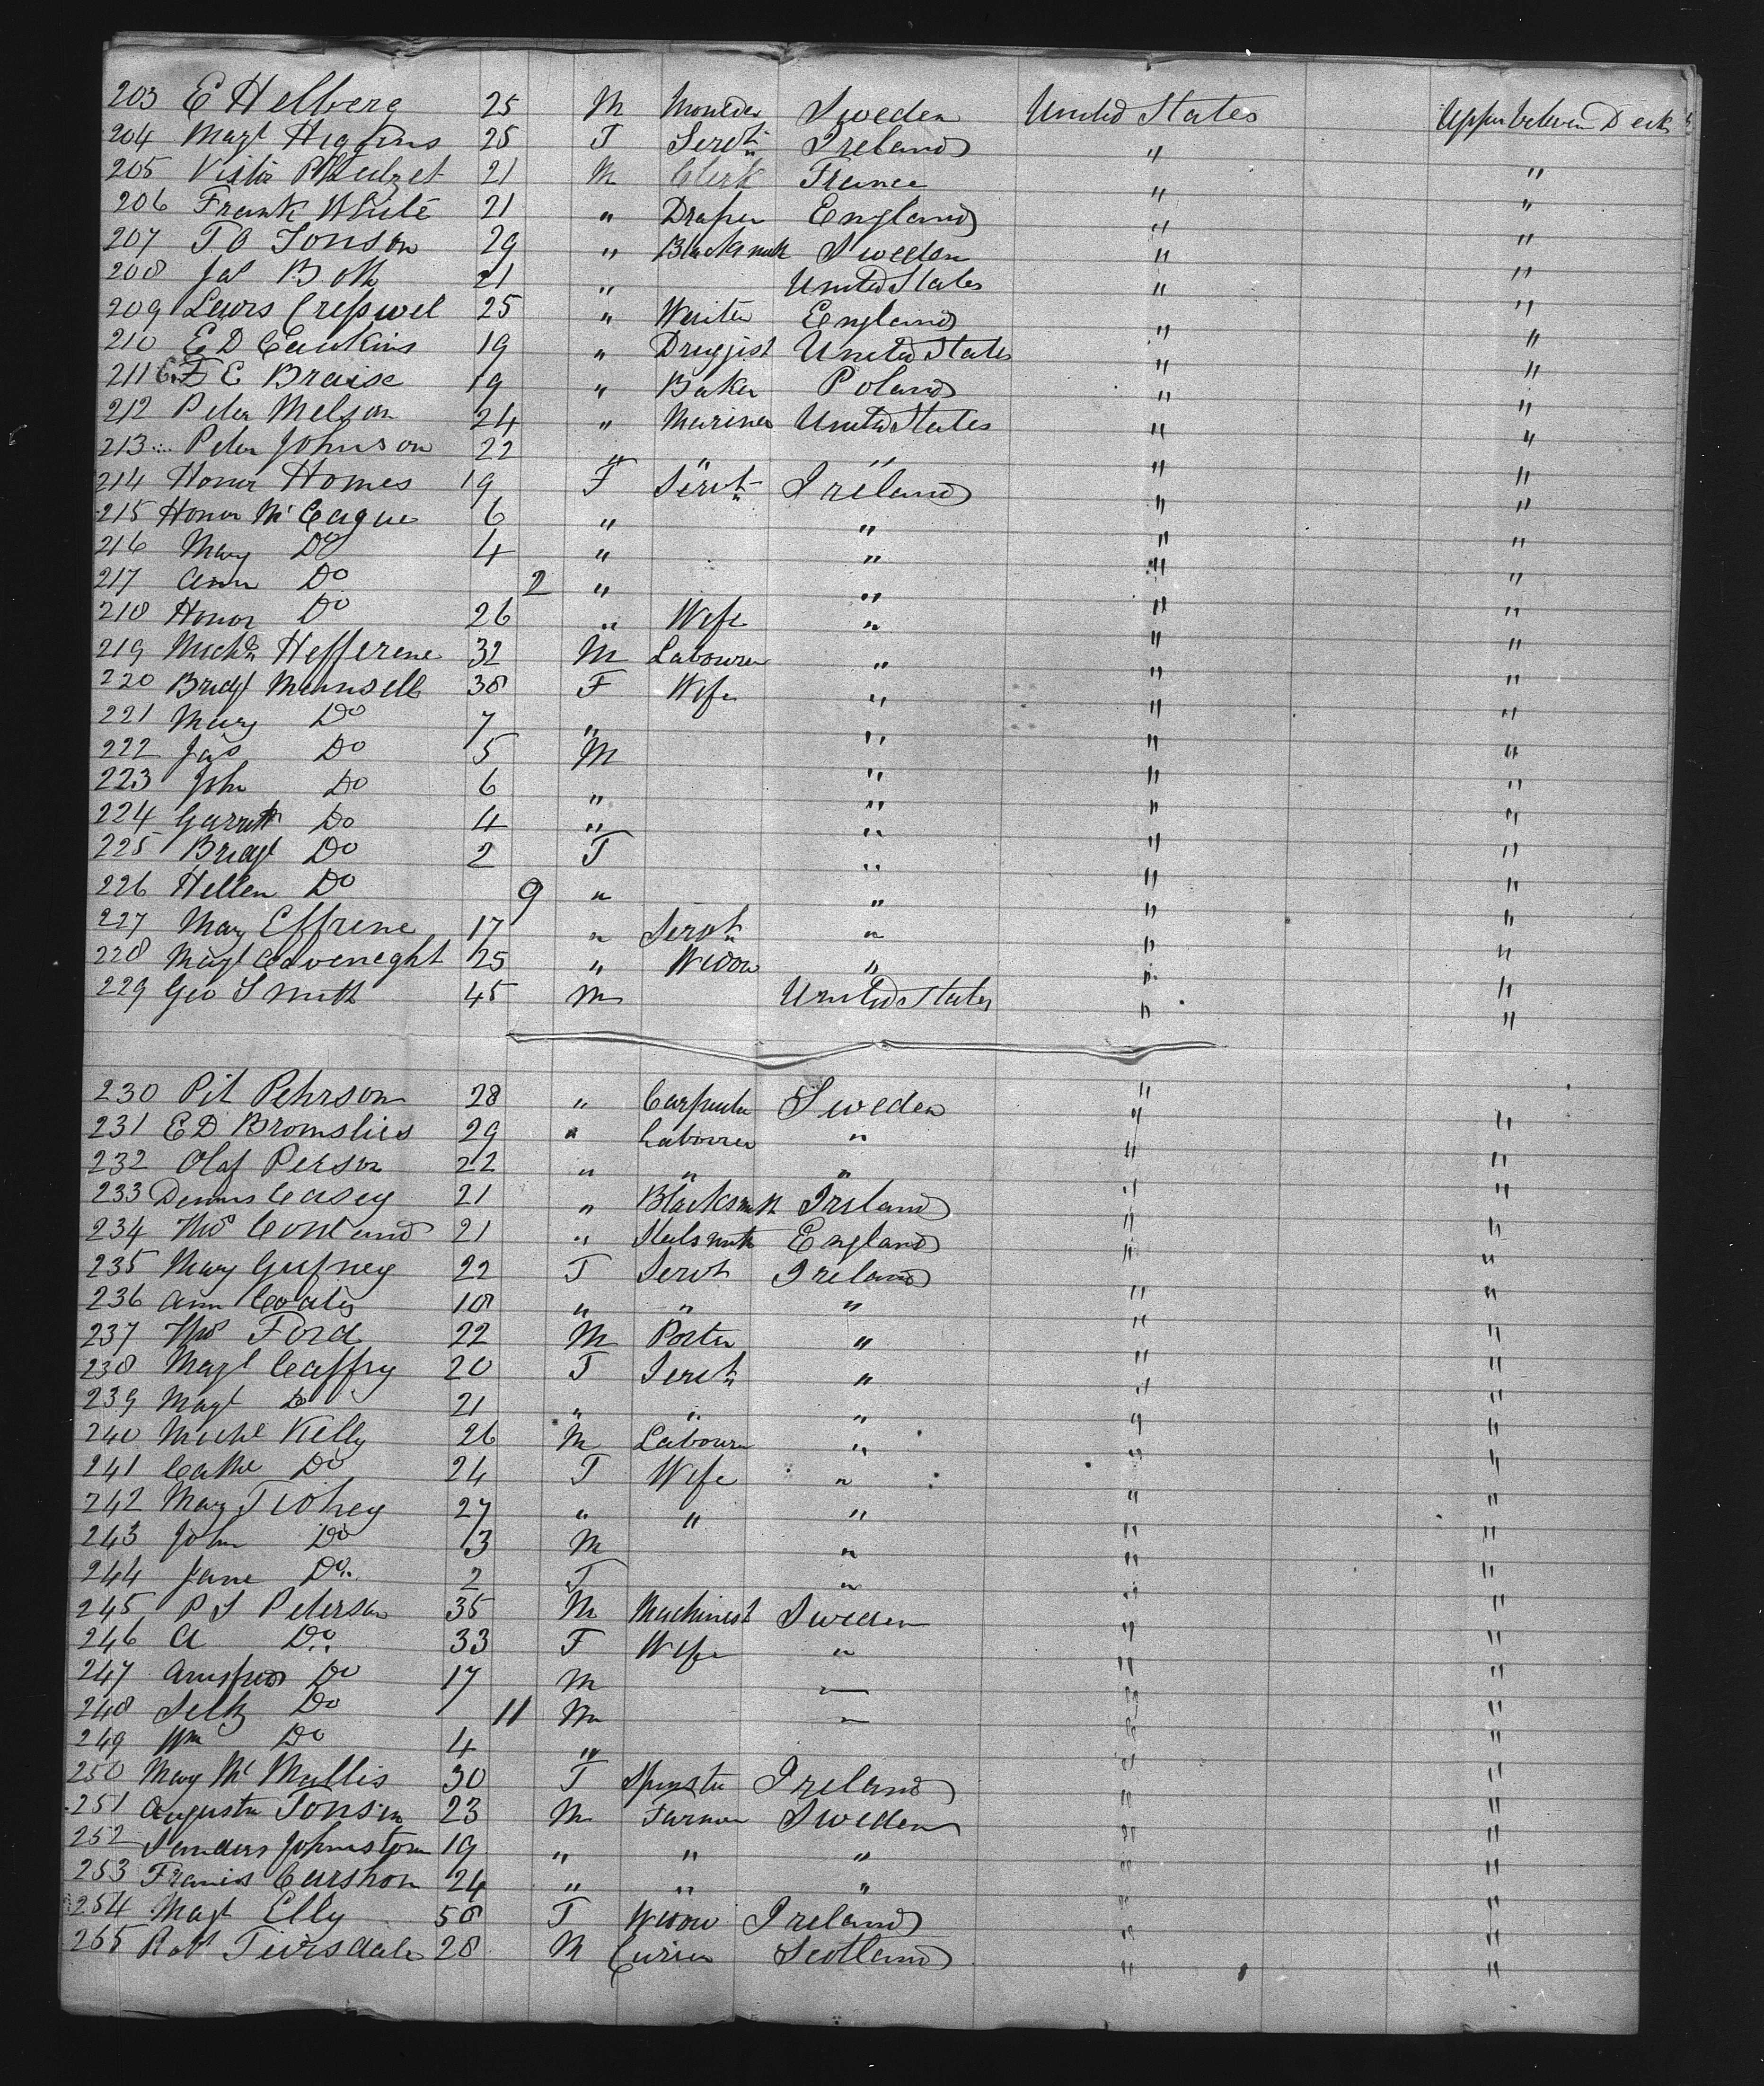 203 E Helberg 25 M Moulder Sweden United States Upper between Deck
204 Magt Higgins 25 F Servt Ireland " "
205 Victor 21 M Clerk France " "
206 Frank White 21 " Draper England " "
207 T O Jonson 29 " Blacksmith Sweden " "
208 Jas Both 21 " United States " "
209 Lewis Cresswel 25 " Waiter England " "
210 E D Caukins 19 " Druggist United States " "
211 F E Braise 19 " Baker Poland " "
212 Peter Nelson 24 " Mariner United States " "
213 Peter Johnson 22 " " " " "
214 Honor Homes 19 F Servt Ireland " "
215 Honor McCague 6 " " " "
216 Mary Do 4 " " " "
217 Ann Do 2 " " " "
218 Honor Do 26 " Wife " " "
219 Michl Hefferene 32 M Labourer " " "
220 Bridgt Mannsell 38 F Wife " " "
221 Mary Do 7 " " " "
222 Jas Do 5 M " " "
223 John Do 6 " " " "
224 Garrett Do 4 " " " "
225 Bridgt Do 2 F " " "
226 Hellen Do 9 " " " "
227 Mary Effrene 17 " Servt " " "
228 Magt Caveneght 25 " Widow " " "
229 Geo Smith 45 M United States " "
230 Pit Pehrson 28 " Carpenter Sweden "
231 E D Bromslies 29 " Labourer " " "
232 Olaf Person 22 " " " " "
233 Dennis Casey 21 " Blacksmith Ireland " "
234 Thos 21 " England " "
235 Mary Gafney 22 F Servt Ireland " "
236 Ann Coates 18 " " " " "
237 Thos Ford 22 M Porter " " "
238 Magt Caffry 20 F Servt " " "
239 Magt Do 21 " " " " "
240 Michl Kelly 26 M Labourer " " "
241 Cathe Do 24 F Wife " " "
242 Mary Twohey 27 " " " " "
243 John Do 3 M " " "
244 Jane Do 2 F " " "
245 P S Peterson 35 M Machinest Sweden " "
246 A Do 33 F Wife " " "
247 Do 17 M " " "
248 Do 11 M " " "
249 Wm Do 4 " " "
250 Mary Mc Mullis 30 F Spinster Ireland " "
251 Augusta Jonson 23 M Farmer Sweden " "
252 Sanders Johnston 19 " " " " "
253 Francis Carshon 24 " " " " "
254 Magt Elly 58 F Widow Ireland " "
255 Robt Tiversdale 28 M Currier Scotland " "